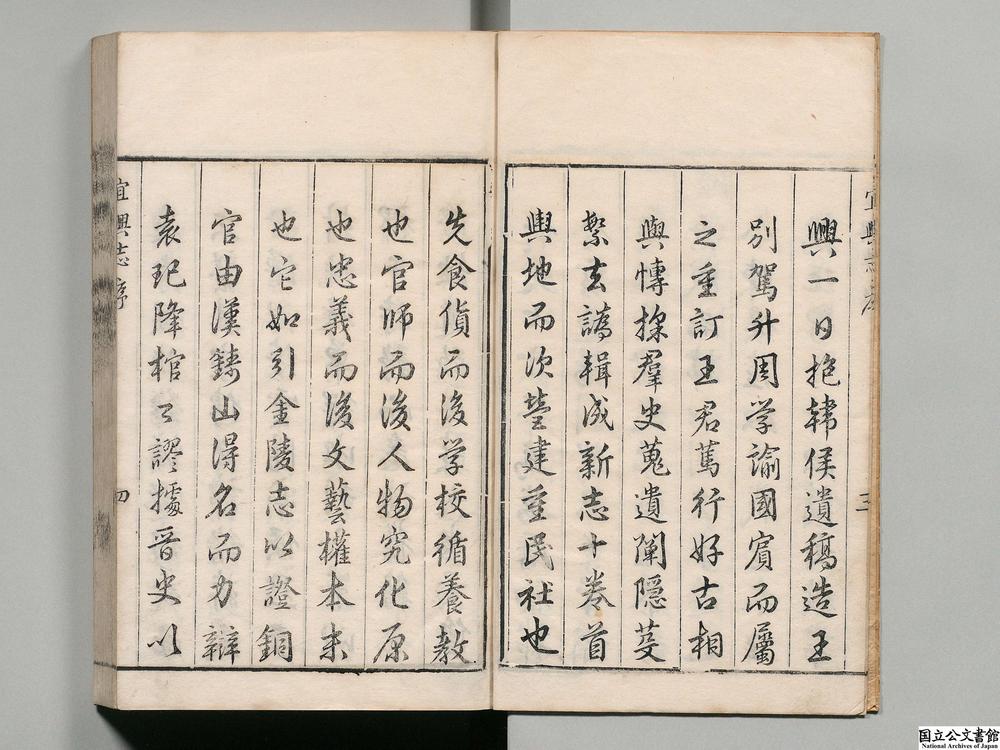 興一日抱韓侯遺稿造王
別駕升周学諭國賓而屬
之重訂王君篤行好古相
與博採羣史蒐遺闡隱芟
繁去譌輯成新志十卷首
輿地而次營建重民社也
先食貨而後学校循養教
也官師而後人物究化原
也忠義而後文藝權本末
也它如引金陵志以證銅
官由漢鑄山得名而力辯
袁玘降棺之謬據晉史以
宜興志序
三
宜興志序
四
国立公文書館
National Archives of Japan